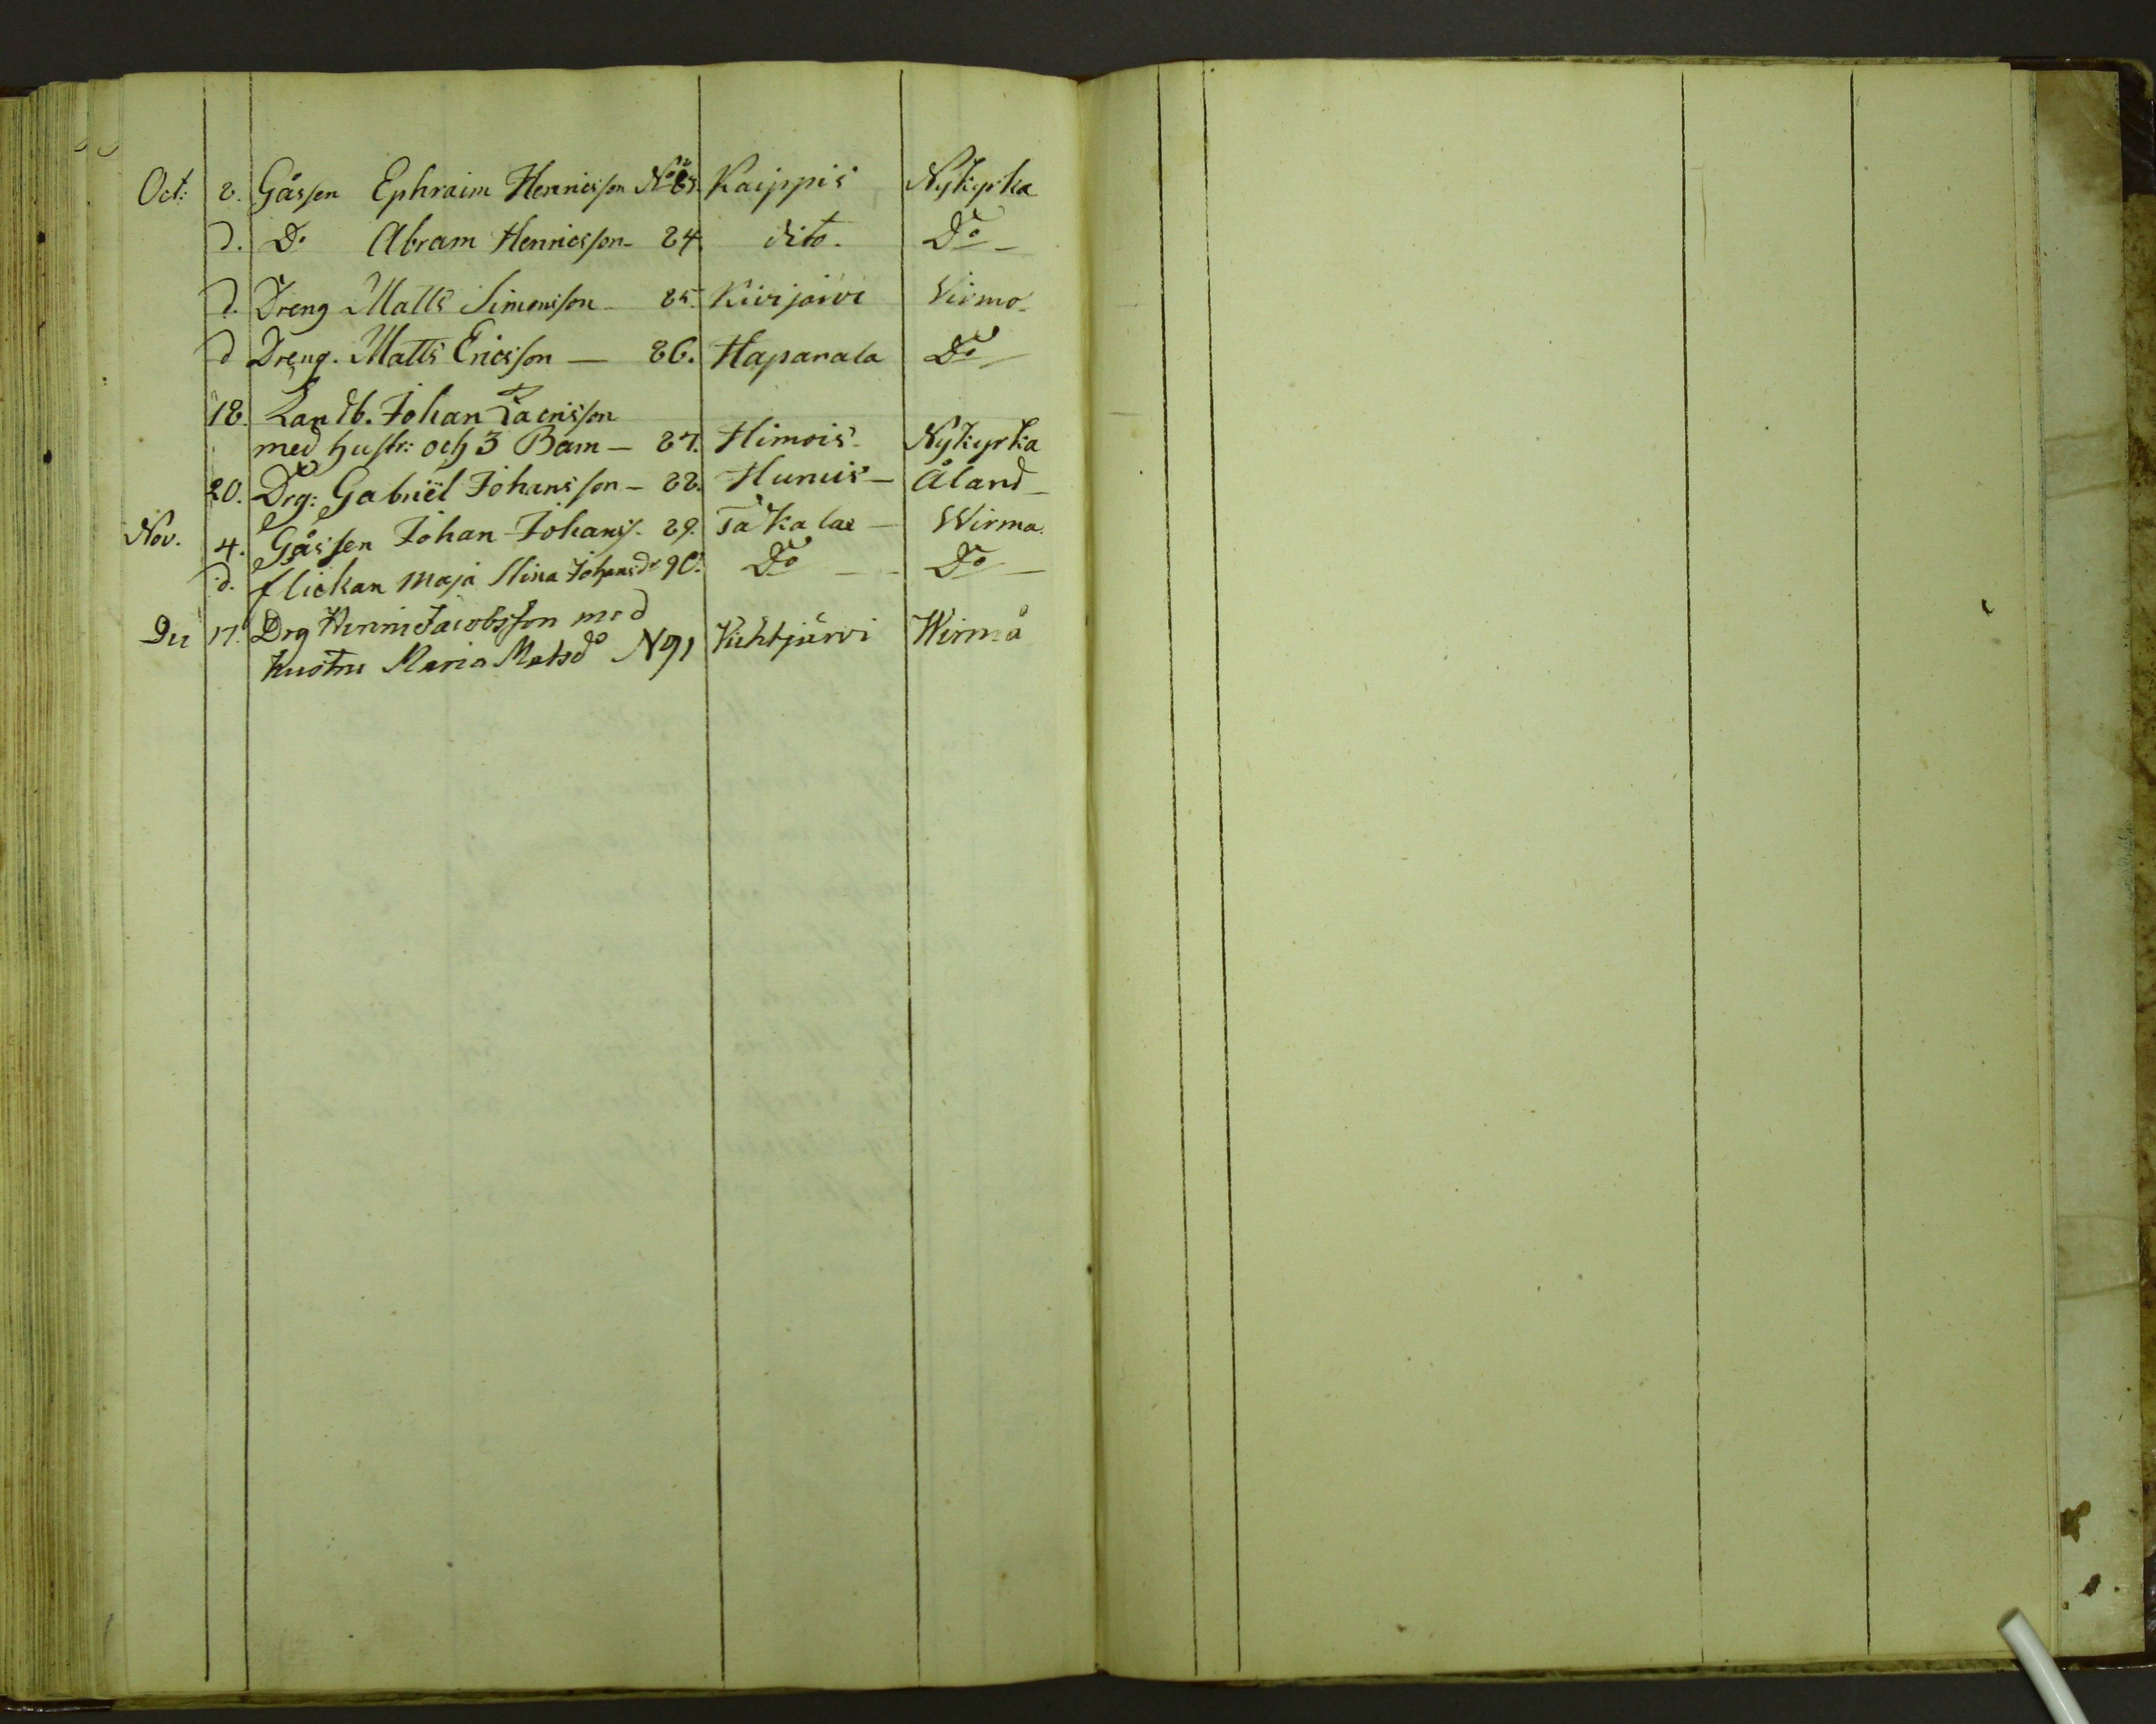 Oct: 8. Gåssen Ephraim Henricsson No 83. Kaippis Nykyrka
d. Do Abram Henricsson - 84. dito. Do -
d. Dreng Matts Simonsson - 85. Kivijärvi Virmo -
d Dreng. Matts Ericsson — 86. Hapanala Do
18. Landb. Johan
med hustr: och 3 Barn — 87. Himois Nykyrka
20. Drg: Gabriel Johansson - 88. Humis — Åland -
Nov. 4. Gåssen Johan Johans. 89. Wirmo.
d. flickan Maja Stina Johansdr 90. Do — Do —
Dec 17. Drg Henric Jacobsson med
hustru Maria Matsdo N 91 Wirmå